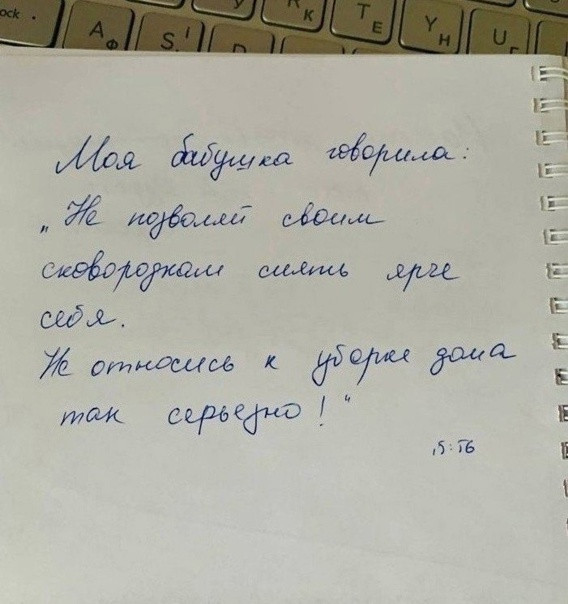 ock
A Ф
S І
K
T Е
Y Н
U Г
Моя бабушка говорила:
„Не позволяй своим
сковородкам сиять ярче
себя.
Не относись к уборке дома
так серьезно!“